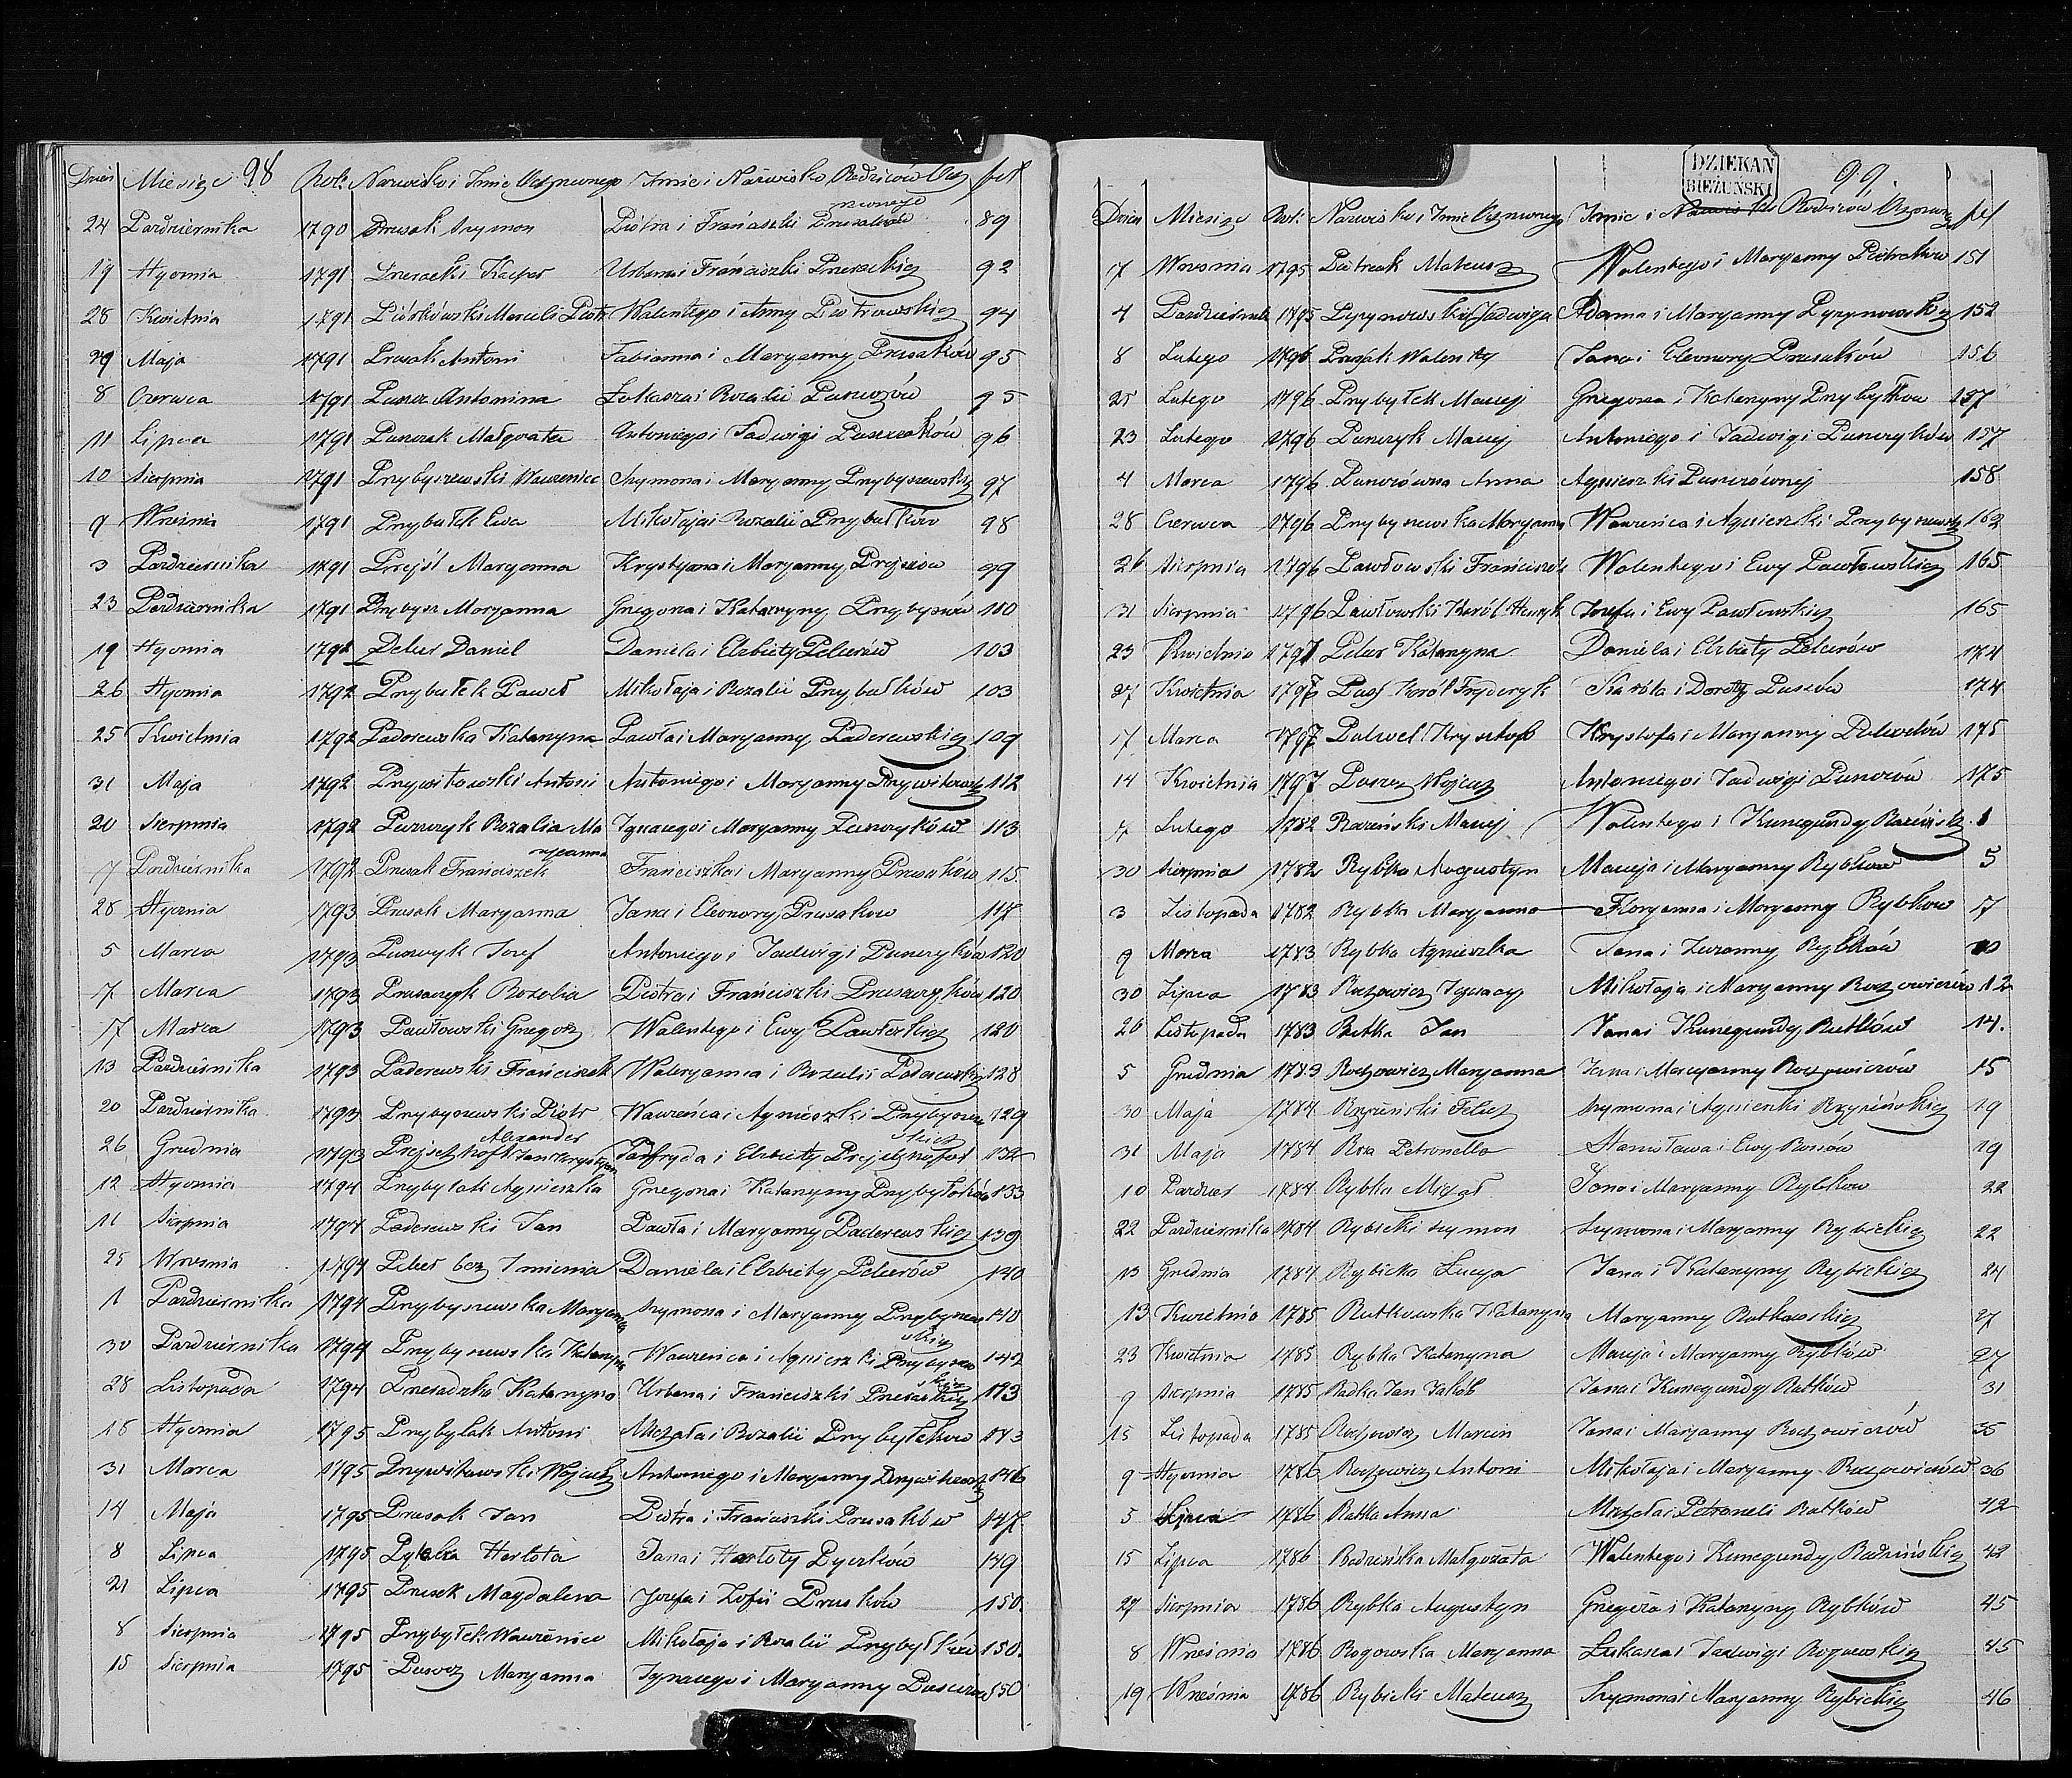 98
Dzień Miesiąc Rok Nazwisko i Imie Ochrzczonego Imie i Nazwisko Rodziców fol
24 Pazdziernika 1790 Prusak Szymon Piotra i Franciszki Prusaków 89
19 Stycznia 1791 Kacper Urbana i Franciszki 92
28 Kwietnia 1791 Piórkowski Marceli Piotr Walentego i Anny Piotrowskich 94
29 Maja 1791 Prusak Antoni Fabianna i Maryanny Prusaków 95
8 Czerwca 1791 Antonina Łukasza i Rozalii 95
11 Lipca 1791 Punczak Małgorzata Antoniego i Jadwigi 96
10 Sierpnia 1791 Przybyszewski Wawrzeniec Szymona i Maryanny Przybyszewskich 97
9 Wrzesnia 1791 Przybułek Ewa Mikołaja i Rozalii Przybułków 98
3 Pazdziernika 1791 Prejsł Maryanna Krystyana i Maryanny 99
23 Pazdziernika 1791 Przybysz Maryanna Grzegorza i Katarzyny Przybyszów 100
19 Stycznia 1792 Pelcer Daniel Daniela i Elzbiety Pelcerów 103
26 Stycznia 1792 Przybułek Paweł Mikołaja i Rozalii Przybułków 103
25 Kwietnia 1792 Paderewska Katarzyna Pawła i Maryanny Paderewskich 109
31 Maja 1792 Przywitowski Antoni Antoniego i Maryanny 112
20 Sierpnia 1792 Punczyk Rozalia Maryanna Ignacego i Maryanny Punczyków 113
7 Pazdziernika 1792 Prusak Franciszek Franciszka i Maryanny Prusaków 115
28 Stycznia 1793 Prusak Maryanna Jana i Eleonory Prusakow 117
5 Marca 1793 Punczyk Jozef Antoniego i Jadwigi Punczyków 120
7 Marca 1793 Prusaczyk Rozalia Piotra i Franciszki Prusaczyków 120
17 Marca 1793 Pawłowski Grzegorz Walentego i Ewy 120
13 Pazdziernika 1793 Paderewski Franciszek Waleryanna i Rozalii Paderewskich 128
20 Pazdziernika 1793 Przybyszewski Piotr Wawrzeńca i Agnieszki Przybyszewskich 129
26 Grudnia 1793 Alexander Jan i Elzbiety 132
12 Stycznia 1794 Przybyłak Agnieszka Grzegorza i Katarzyny Przybyłaków 133
11 Sierpnia 1794 Paderewski Jan Pawła i Maryanny Paderewskich 139
25 Wrzesnia 1794 Pelcer bez Imienia Daniela i Elzbiety Pelcerów 140
1 Pazdziernika 1794 Przybyszewska Maryanna Szymona i Maryanny Przybyszewskich 140
30 Pazdziernika 1794 Przybyszewska Katarzyna Wawrzeńca i Agnieszki Przybyszewskich 142
28 Listopada 1794 Katarzyna Urbana i Franciszki 143
18 Stycznia 1795 Przybyłak Antoni Michała i Rozalii Przybyłekow 143
31 Marca 1795 Przywitowski Wojciech Antoniego i Maryanny 146
14 Maja 1795 Prusak Jan Piotra i Franciszki Prusaków 147
8 Lipca 1795 Jana i 149
21 Lipca 1795 Prusek Magdalena Jozefa i Zofii Prusków 150
8 Sierpnia 1795 Przybyłek Wawrzeniec Mikołaja i Rozalii 150
15 Sierpnia 1795 Maryanna Ignacego i Maryanny 150
DZIEKAN
BIEŻUŃSKI
99.
Dzień Miesiąc Rok Nazwisko i Imie Imie i Nazwisko Rodziców fol
17 Wrzesnia 1795 Pietrzak Mateusz Walentego i Maryanny Pietrzaków 151
4 Pazdziernik 1795 Jadwiga Adama i Maryanny 152
8 Lutego 1796 Prusak Walenty Jana i Eleonory Prusaków 156
25 Lutego 1796 Przybyłek Maciej Grzegorza i Katarzyny Przybyłkow 157
23 Lutego 1796 Punczyk Maciej Antoniego i Jadwigi Punczyków 157
4 Marca 1796 Anna Agnieszki 158
28 Czerwca 1796 Przybyszewska Maryanna Wawrzeńca i Agnieszki Przybyszewskich 162
26 Sierpnia 1796 Pawłowski Franciszek Walentego i Ewy Pawłowskich 165
31 Sierpnia 1796 Pawłowski Karól Henryk Jozefa i Ewy Pawłowskich 165
23 Kwietnia 1797 Pelcer Katarzyna Daniela i Elzbiety Pelcerów 174
27 Kwietnia 1797 Karól Fryderyk Karóla i Doroty 174
17 Marca 1797 Krysztof Krystofa i Maryanny 175
14 Kwietnia 1797 Wojciech Antoniego i Jadwigi 175
7 Lutego 1782 Maciej Walentego i Kunegundy 1
30 Sierpnia 1782 Rybka Augustyn Macieja i Maryanny Rybkow 5
3 Listopada 1782 Rybka Maryanna Floryanna i Maryanny Rybkow 7
9 Marca 1783 Rybka Agnieszka Jana i Zuzanny Rybków 10
30 Lipca 1783 Ignacy Mikołaja i Maryanny 12
26 Listopada 1783 Rutka Jan Jana i Kunegundy Rutków 14.
5 Grudnia 1783 Maryanna Jana i Maryanny 15
30 Maja 1784 Szymona i Agnieszki 19
31 Maja 1784 Petronella Stanisława i Ewy 19
10 1784 Rybka Michał Jana i Maryanny Rybkow 22
22 Pazdziernika 1784 Rybicki Szymon Szymona i Maryanny Rybickich 22
13 Grudnia 1784 Rybicka Łucya Jana i Katarzyny Rybickich 24
13 Kwietnia 1785 Rutkowska Katarzyna Maryanny Rutkowskich 27
23 Kwietnia 1785 Rybka Katarzyna Macieja i Maryanny Rybków 27
9 Sierpnia 1785 Jan Jakób Jana i Kunegundy Ratków 31
15 Listopada 1785 Marcin Jana i Maryanny 35
9 Stycznia 1786 Antoni Mikołaja i Maryanny 36
5 Lipca 1786 Ratka Anna Michała i Petroneli Ratków 42
15 Lipca 1786 Małgorzata Walentego i Kunegundy 42
27 Sierpnia 1786 Rybka Augustyn Grzegorza i Katarzyny Rybków 45
8 Września 1786 Rogowska Maryanna Łukasza i Jadwigi Rogowskich 45
19 Września 1786 Rybicki Mateusz Szymona i Maryanny Rybickich 46